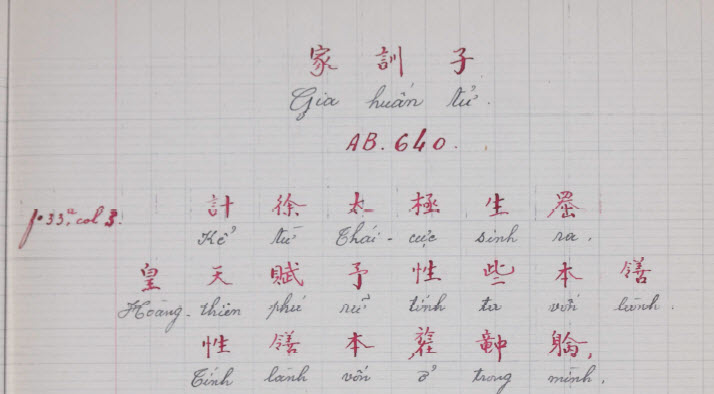 家 訓 子
Gia huấn tử.
AB. 640.
fº 33ª, col 3.
計 徐 太 極 生 𦋦
Kể từ Thái-cực sinh ra.
皇 天 賦 予 性 些 本
Hoàng-thiên phú tính ta vốn lành.
性 本
Tính lành vốn ở trong mình.